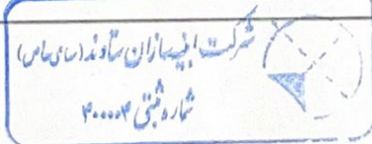 شرکت ابنیه سازان ستاوند (سهامی خاص)
شماره ثبتی ۴۰۰۰۰۴